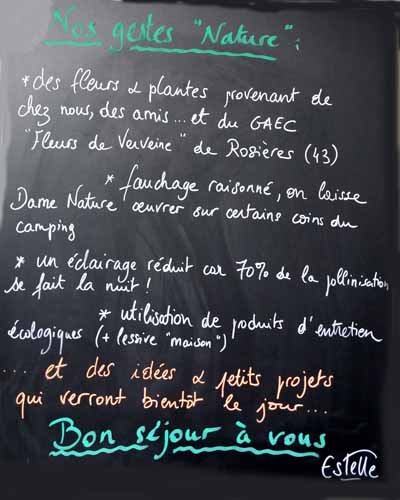 Nos gestes "Nature":
* des fleurs & plantes provenant de
chez nous, des amis... et du GAEC
"Fleurs de Verveine" de Rosières (43)
* fauchage raisonné, on laisse
Dame Nature œuvrer sur certains coins du
camping
* un éclairage réduit car 70% de la pollinisation
se fait la nuit !
* utilisation de produits d'entretien
écologiques (+ lessive "maison")
... et des idées & petits projets
qui verront bientôt le jour...
Bon séjour à vous
Estelle